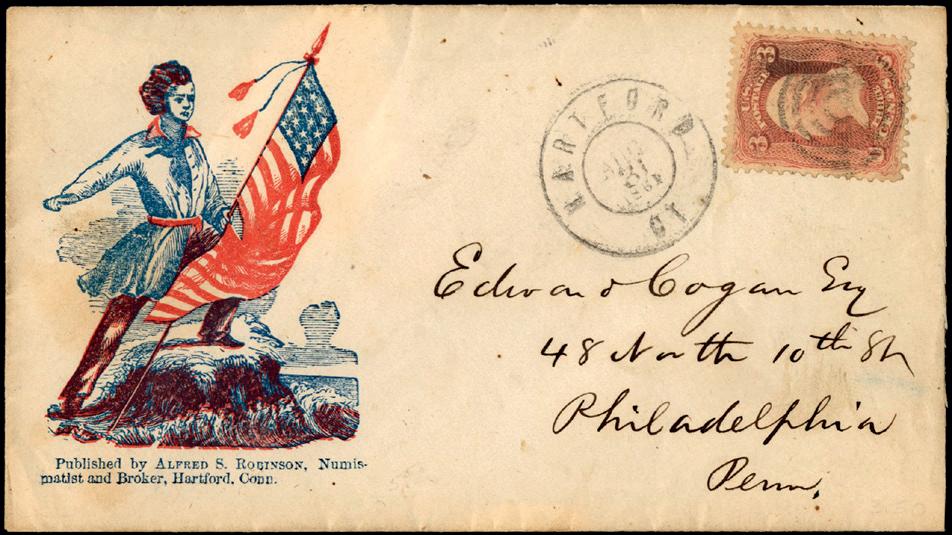 Published by ALFRED S. ROBINSON, Numis-
matist and Broker, Hartford, Conn.
HARTFORD
3
3
Edward Cogan Esq
48 North 10th St
Philadelphia
Penn.